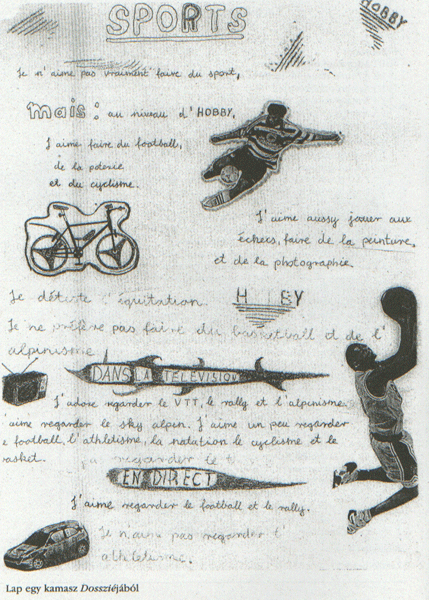 SPORTS
HOBBY
Je n'aime pas vraiment faire du sport,
mais: au niveau d'HOBBY,
J'aime faire du football,
de la poterie
et du cyclisme.
J'aime aussy jouer aux
échecs, faire de la peinture,
et de la photographie.
Je déteste l'équitation.
H BY
Je ne préfère pas faire du basketball et de l'
alpinisme
DANS LA TELEVISION
J'adore regarder le VTT, le rally et l'alpinisme.
'aime regarder le sky alpin. J'aime un peu regarder
e football, l'athlétisme, la natation le cyclisme et le
basket.
EN DIRECT
J'aime regarder le football et le rally.
Je n'aime pas regarder l'
athlétisme.
Lap egy kamasz Dossziéjából